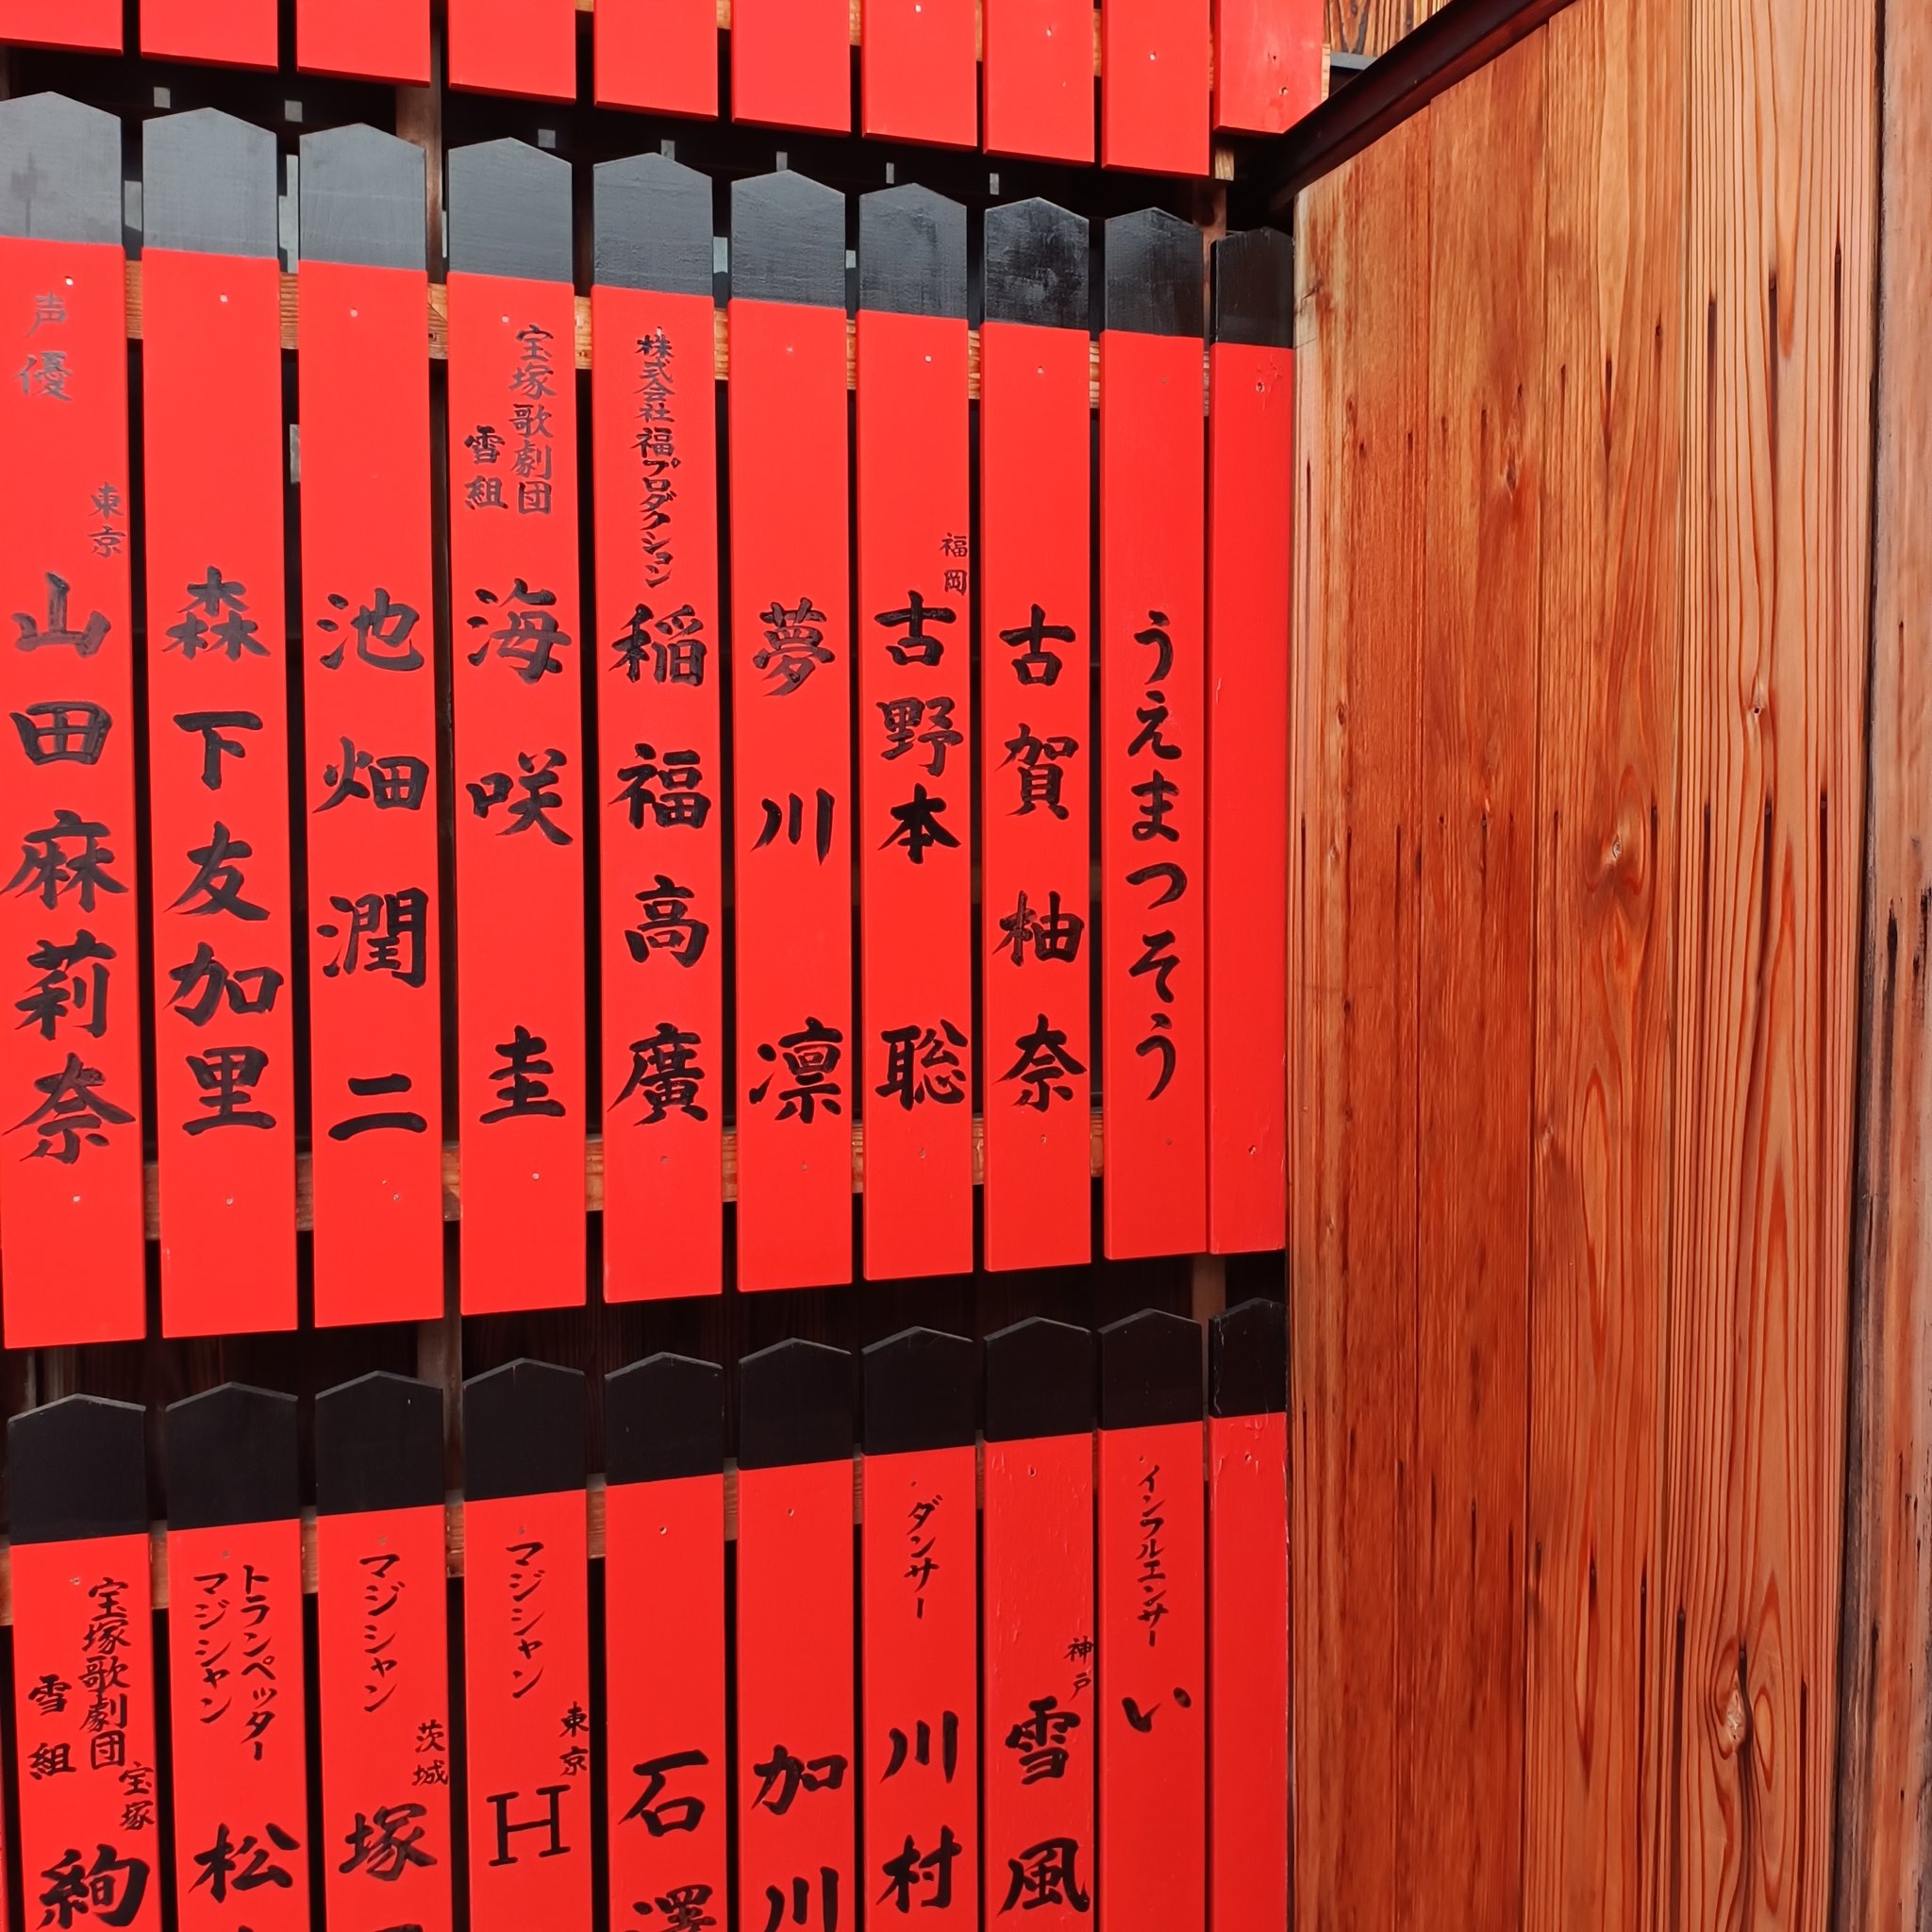 うえまつそう
古賀柚奈
福岡
古野本聡
夢川凛
株式会社福プロダクション
稲福高廣
宝塚歌劇団
雪組
海咲圭
池畑潤二
森下友加里
声優
東京
山田麻莉奈
インフルエンサー
い
神戸
雪風
ダンサー
川村
加川
石澤
マジシャン
東京
H
マジシャン
茨城
塚
トランペッター
マジシャン
松
宝塚歌劇団
雪組
宝塚
絢